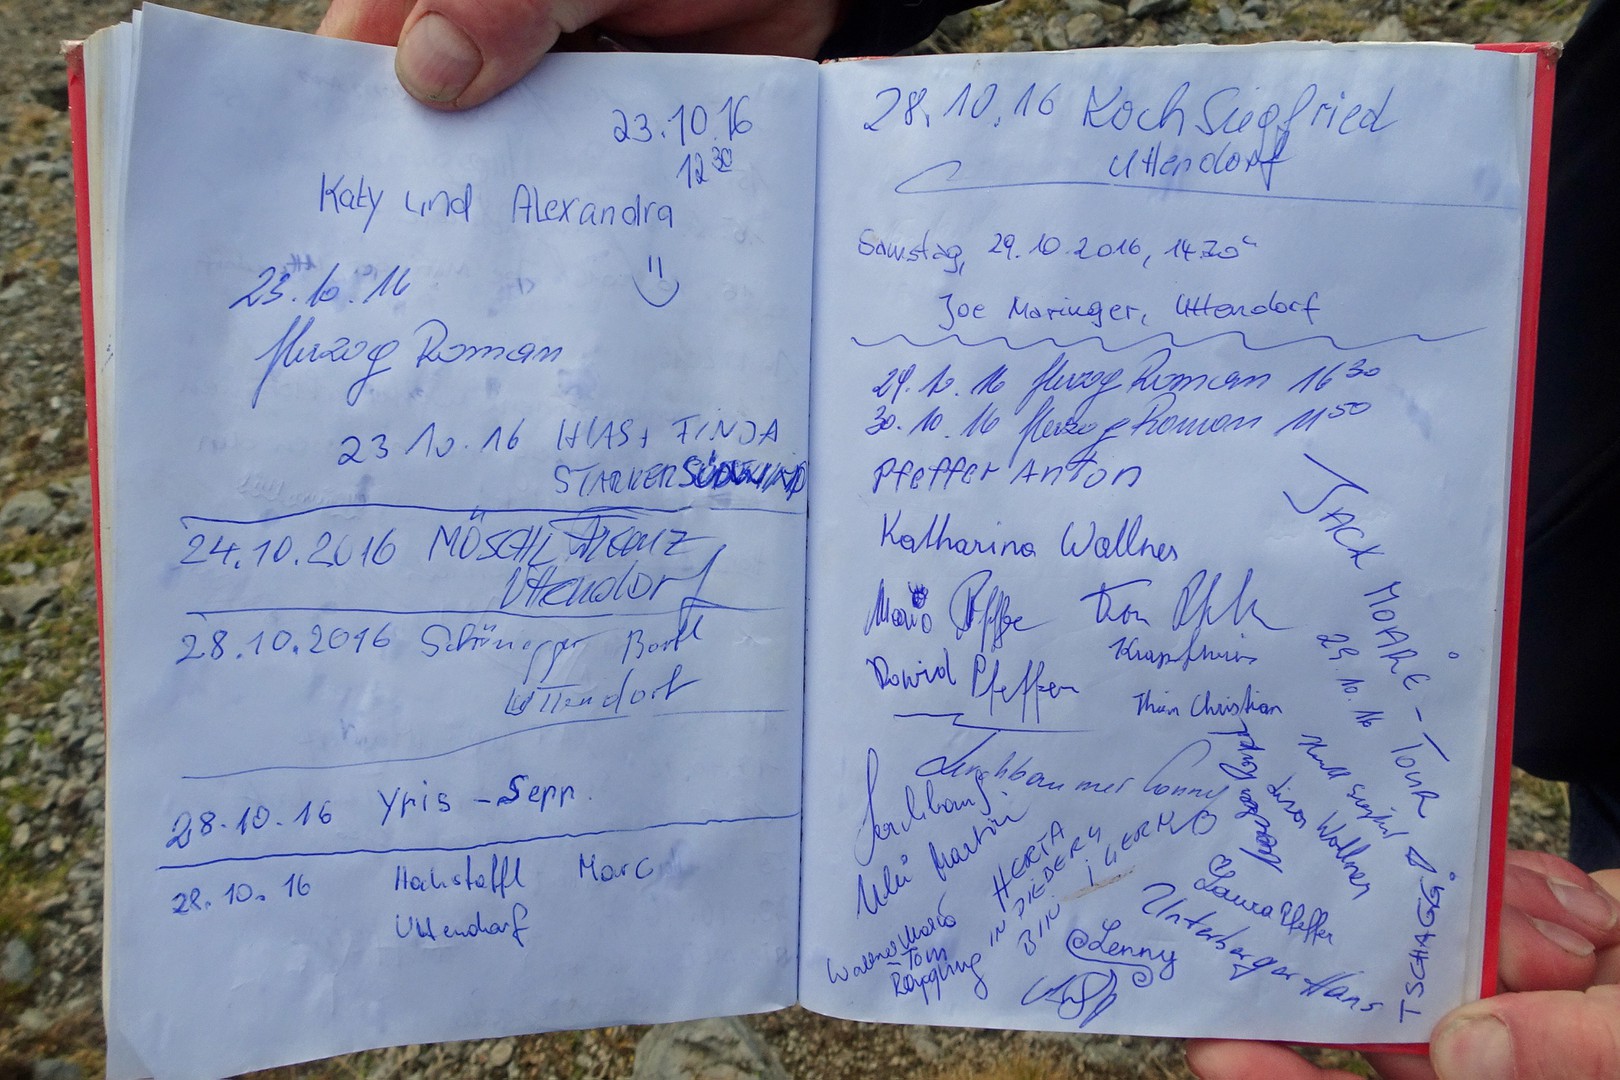 23.10.16
12 30
Katy und Alexandra
23.10.16
Herzog Roman
23 10.16 HIAS + FINJA
STARKER SÜDWIND
24.10.2016 MÖSCHL
Uttendorf
28.10.2016 Schönegger Bartl
Uttendorf
28.10.16 Yris - Sepp.
28.10.16 Hochstaffl Marc
Uttendorf
28.10.16 Koch Siegfried
Uttendorf
Samstag, 29.10.2016, 14 30
Joe Maringer, Uttendorf
29.10.16 Herzog Roman 16 30
30.10.16 Herzog Roman 11 50
Pfeffer Anton
Katharina Wallner
Mario Pfeffer
David Pfeffer
Christian
Lerchbaumer Conny
Martin
HERTA
IN
BIN I
Tom
@Lenny
Laura Pfeffer
Unterberger Hans
Wallner
JACK MOARE - TOUR
29.10.16
TSCHAGGÖ